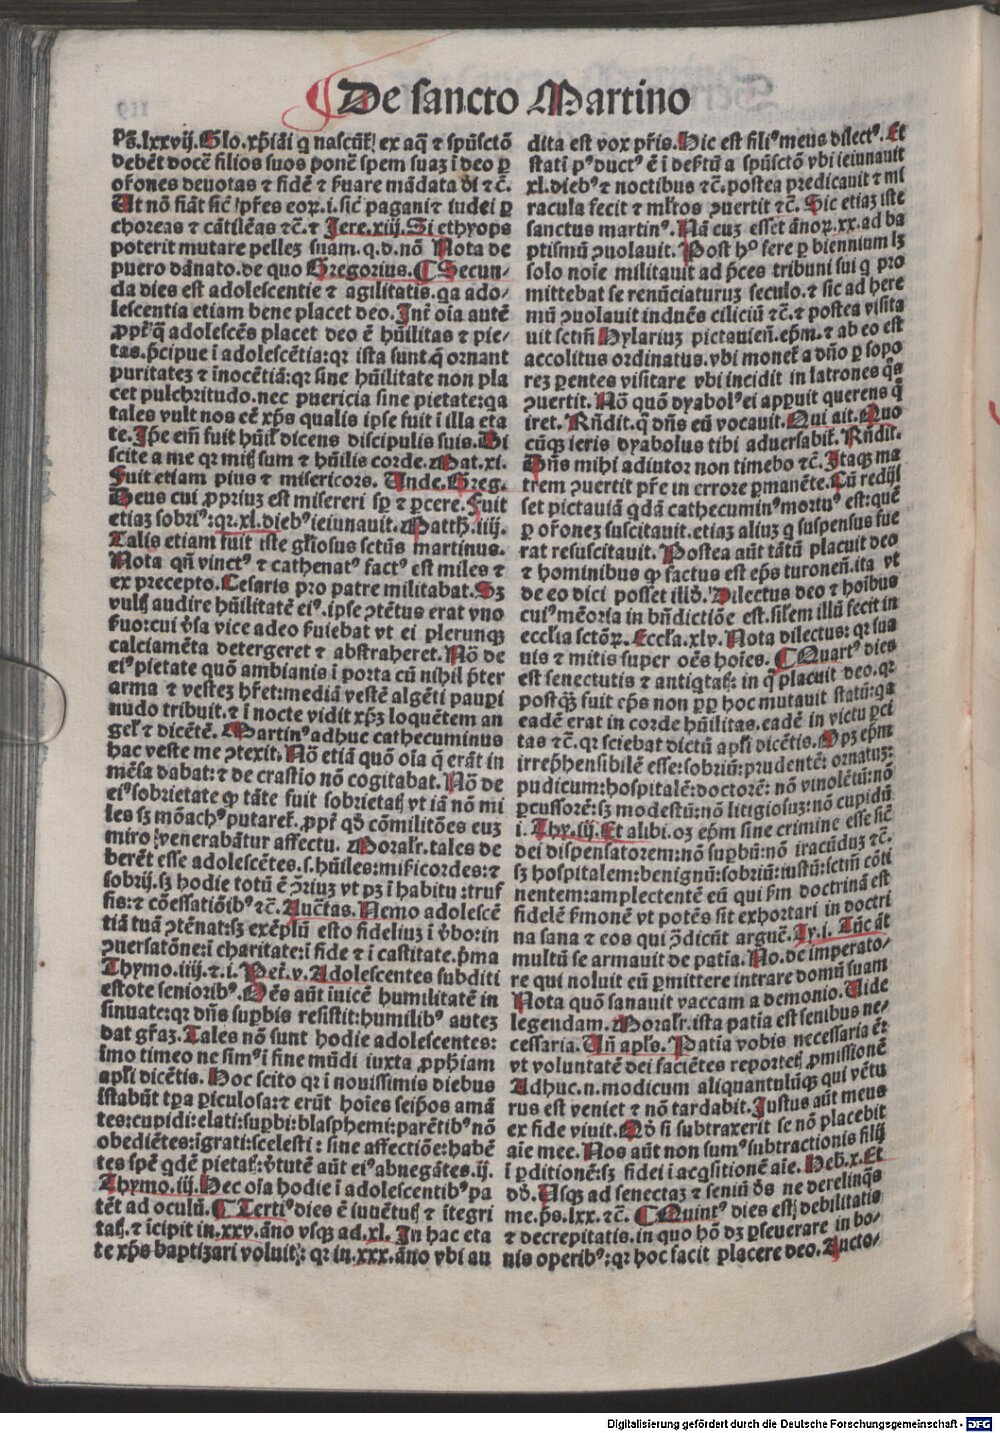 De sancto Martino
Ps̄. lxxvij. Glo. xp̄iāi q̄ nascūt᷑ ex aq̄ ⁊ spūsctō
debēt docē filios suos ponē spem suaꝫ ī deo ꝑ
or̄ones deuotas ⁊ fidē ⁊ ẜuare mādata dī ⁊c̄.
Ut nō fiāt sic̄ pr̄es eoꝝ .i. sic̄ pagani ⁊ iudei ꝑ
choreas ⁊ cātilēas ⁊c̄. ⁊ Jere. xiij. Si ethyops
poterit mutare pelleꝫ suam. q. d. nō Nota de
puero dānato. de quo Gregorius. ¶ Secun-
da dies est adolescentie ⁊ agilitatis. qa ado/
lescentia etiam bene placet deo. Int̄ oīa autē
ꝓpt̄ q̄ adolescēs placet deo ē hūilitas ⁊ pie-
tas. p̄cipue ī adolescētia: qꝛ ista sunt q̄ ornant
puritateꝫ ⁊ īnocētiā: qꝛ sine hūilitate non pla
cet pulchritudo. nec puericia sine pietate: qa
tales vult nos cē xp̄s qualis ipse fuit ī illa eta
te. Ip̄e em̄ fuit hūil' dicens discipulis suis. Di
scite a me qꝛ mit' sum ⁊ hūilis corde. Mat. xi.
Fuit etiam pius ⁊ misericors. Unde. Greg.
Deus cui ꝓprius est misereri sp̄ ⁊ ꝑcere. Fuit
etiaꝫ sobriꝰ: qꝛ. xl. diebꝰ ieiunauit. Matth. iiij.
Talis etiam fuit iste gl̄iosus sctūs martinus.
Nota qn̄ vinctꝰ ⁊ cathenatꝰ factꝰ est miles ⁊
ex precepto. Cesaris pro patre militabat. Sꝫ
vult' audire hūilitatē eiꝰ. ipse ꝯtētus erat vno
ẜuo: cui v̄sa vice adeo ẜuiebat vt ei plerunqꝫ
calciamēta detergeret ⁊ abstraheret. Nō de
eiꝰ pietate quō ambianis ī porta cū nihil p̄ter
arma ⁊ vesteꝫ hr̄et: mediā vestē algēti pauꝑi
nudo tribuit. ⁊ ī nocte vidit xp̄ꝫ loquētem an
gel' ⁊ dicētē. Martinꝰ adhuc cathecuminus
hac veste me ꝯtexit. Nō etiā quō oīa q̄ erāt in
mēsa dabat: ⁊ de crastio nō cogitabat. Nō de
eiꝰ sobrietate ꝙ tāte fuit sobrietat' vt iā nō mi
les sꝫ mōachꝰ putaret᷑. ꝓpt̄ qd̄ cōmilitōes euꝫ
miro venerabātur affectu. Moralr̄. tales de
berēt esse adolescētes. s. hūiles: mīsicordes: ⁊
sobrij. sꝫ hodie totū ē ꝯ̄riuꝫ vt pꝫ ī habitu: truf
fis: ⁊ cōessatiōibꝰ ⁊c̄. Auctas. Nemo adolescē
tiā tuā ꝯtēnat: sꝫ exēplū esto fideliuꝫ ī v̄bo: in
ꝯuersatōne: ī charitate: ī fide ⁊ ī castitate. p̄ma
Thymo. iiij. ⁊. i. Pet̄. v. Adolescentes subditi
estote senioribꝰ. Oēs aūt īuicē humilitatē in
sinuate: qꝛ dn̄s suꝑbis resistit: humilibꝰ auteꝫ
dat gr̄aꝫ. Tales nō sunt hodie adolescentes:
īmo timeo ne simꝰ ī fine mūdi iuxta ꝓph̄iam
apl̄i dicētis. Hoc scito qꝛ ī nouissimis diebus
īstabūt tꝑa ꝑiculosa: ⁊ erūt hoīes seīp̄os amā
tes: cupidi: elati: suꝑbi: blasphemi: parētibꝰ nō
obediētes: īgrati: scelesti: sine affectiōe: habē
tes spē qdē pietat': v̄tutē aūt eiꝰ abnegātes. ij.
Thymo. iij. Hec oīa hodie ī adolescentibꝰ pa
tēt ad oculū. ¶ Tertiꝰ dies ē iuuētut' ⁊ ītegri
tat'. ⁊ īcipit in. xxv. āno vsqꝫ ad. xl. In hac eta
te xp̄s baptizari voluit: qꝛ in. xxx. āno vbi au
dita est vox pr̄is. Hic est filiꝰ meus dilectꝰ. Et
statī pꝰ ductꝰ ē ī desꝛtū a spūsctō vbi ieiunauit
xl. diebꝰ ⁊ noctibus ⁊c̄. postea predicauit ⁊ mi
racula fecit ⁊ ml̄tos ꝯuertit ⁊c̄. Sic etiaꝫ iste
sanctus martinꝰ. Nā cuꝫ esset ānoꝝ. xx. ad ba
ptismū ꝯuolauit. Post hꝰ fere ꝑ biennium lꝫ
solo noīe militauit ad p̄ces tribuni sui q̄ pro
mittebat se renūciaturuꝫ seculo. ⁊ sic ad here
mū ꝯuolauit induēs ciliciū ⁊c̄. ⁊ postea visita
uit sctm̄ Hylariuꝫ pictauien̄. ep̄m. ⁊ ab eo est
accolitus ordinatus. vbi monet᷑ a dn̄o ꝑ sopo
reꝫ ꝑentes visitare vbi incidit in latrones q̄s
ꝯuertit. Nō quō dyabolꝰ ei apparuit querens q̄
iret. Rn̄dit. q̄ dn̄s eū vocauit. Qui ait. Quo
cūqꝫ ieris dyabolus tibi aduersabit᷑. Rn̄dit.
Dn̄s mihi adiutor non timebo ⁊c̄. Itaqꝫ ma
trem ꝯuertit pr̄e in errore ꝑmanēte. Cū redijs
set pictauiā qdā cathecuminꝰ mortuꝰ est: quē
ꝑ or̄oneꝫ suscitauit. etiaꝫ aliuꝫ q̄ suspensus fue
rat resuscitauit. Postea aūt tātū placuit deo
⁊ hominibus ꝙ factus est ep̄s turonen̄. ita vt
de eo dici posset illd̄. Dilectus deo ⁊ hoībus
cuiꝰ mēoria in bn̄dictiōe est. sil'em illū fecit in
eccl̄ia sctōꝝ. Eccl'a. xlv. Nota dilectus: qꝛ sua
uis ⁊ mitis super oēs hoīes. ¶ Quartꝰ dies
est senectutis ⁊ antiqtat': in q̄ placuit deo. qꝛ
postq̄ꝫ fuit ep̄s non ꝓp̄ hoc mutauit statū: qa
eadē erat in corde hūilitas. eadē in victu ꝑci
tas ⁊c̄. qꝛ sciebat dictū apl̄i dicētis. Opꝫ ep̄m
irrep̄hensibilē esse: sobriū: prudentē: ornatuꝫ:
pudicum: hospitalē: doctorē: nō vinolētū: nō
ꝑcussorē: sꝫ modestū: nō litigiosuꝫ: nō cupidū
i. Thy. iij. Et alibi. oꝫ ep̄m sine crimine esse sic̄
dei dispensatorem: nō suꝑbū: nō iracūduꝫ ⁊c̄.
sꝫ hospitalem: benignū: sobriū: iustū: sctm̄ cōti
nentem: amplectentē eū qui ẜm doctrinā est
fidelē ẜmonē vt potēs sit exhortari in doctri
na sana ⁊ eos qui ꝯ̄dicūt arguē. Ty. i. Tūc āt
multū se armauit de patia. No. de imperato/
re qui noluit eū ꝑmittere intrare domū suam
Nota quō sanauit vaccam a demonio. Uide
legendam. Moralr̄. ista patia est senibus ne-
cessaria. Un̄ apl's. Patia vobis necessaria ē:
vt voluntatē dei faciētes reportet' ꝓmissionē
Adhuc. n. modicum aliquantulūqꝫ qui vētu
rus est veniet ⁊ nō tardabit. Justus aūt meus
ex fide viuit. Qd̄ si subtraxerit se nō placebit
aīe mee. Nos aūt non sumꝰ subtractionis filij
ī ꝑditionē: sꝫ fidei ī acqsitionē aīe. Heb. x. Et
dd̄. Usqꝫ ad senectaꝫ ⁊ seniū ds̄ ne derelinq̄s
me. ps̄. lxx. ⁊c̄. ¶ Quintꝰ dies est debilitatis
⁊ decrepitatis. in quo hō dꝫ ꝑseuerare in bo/
nis operibꝰ: qꝛ hoc facit placere deo. Aucto/
Digitalisierung gefördert durch die Deutsche Forschungsgemeinschaft - DFG